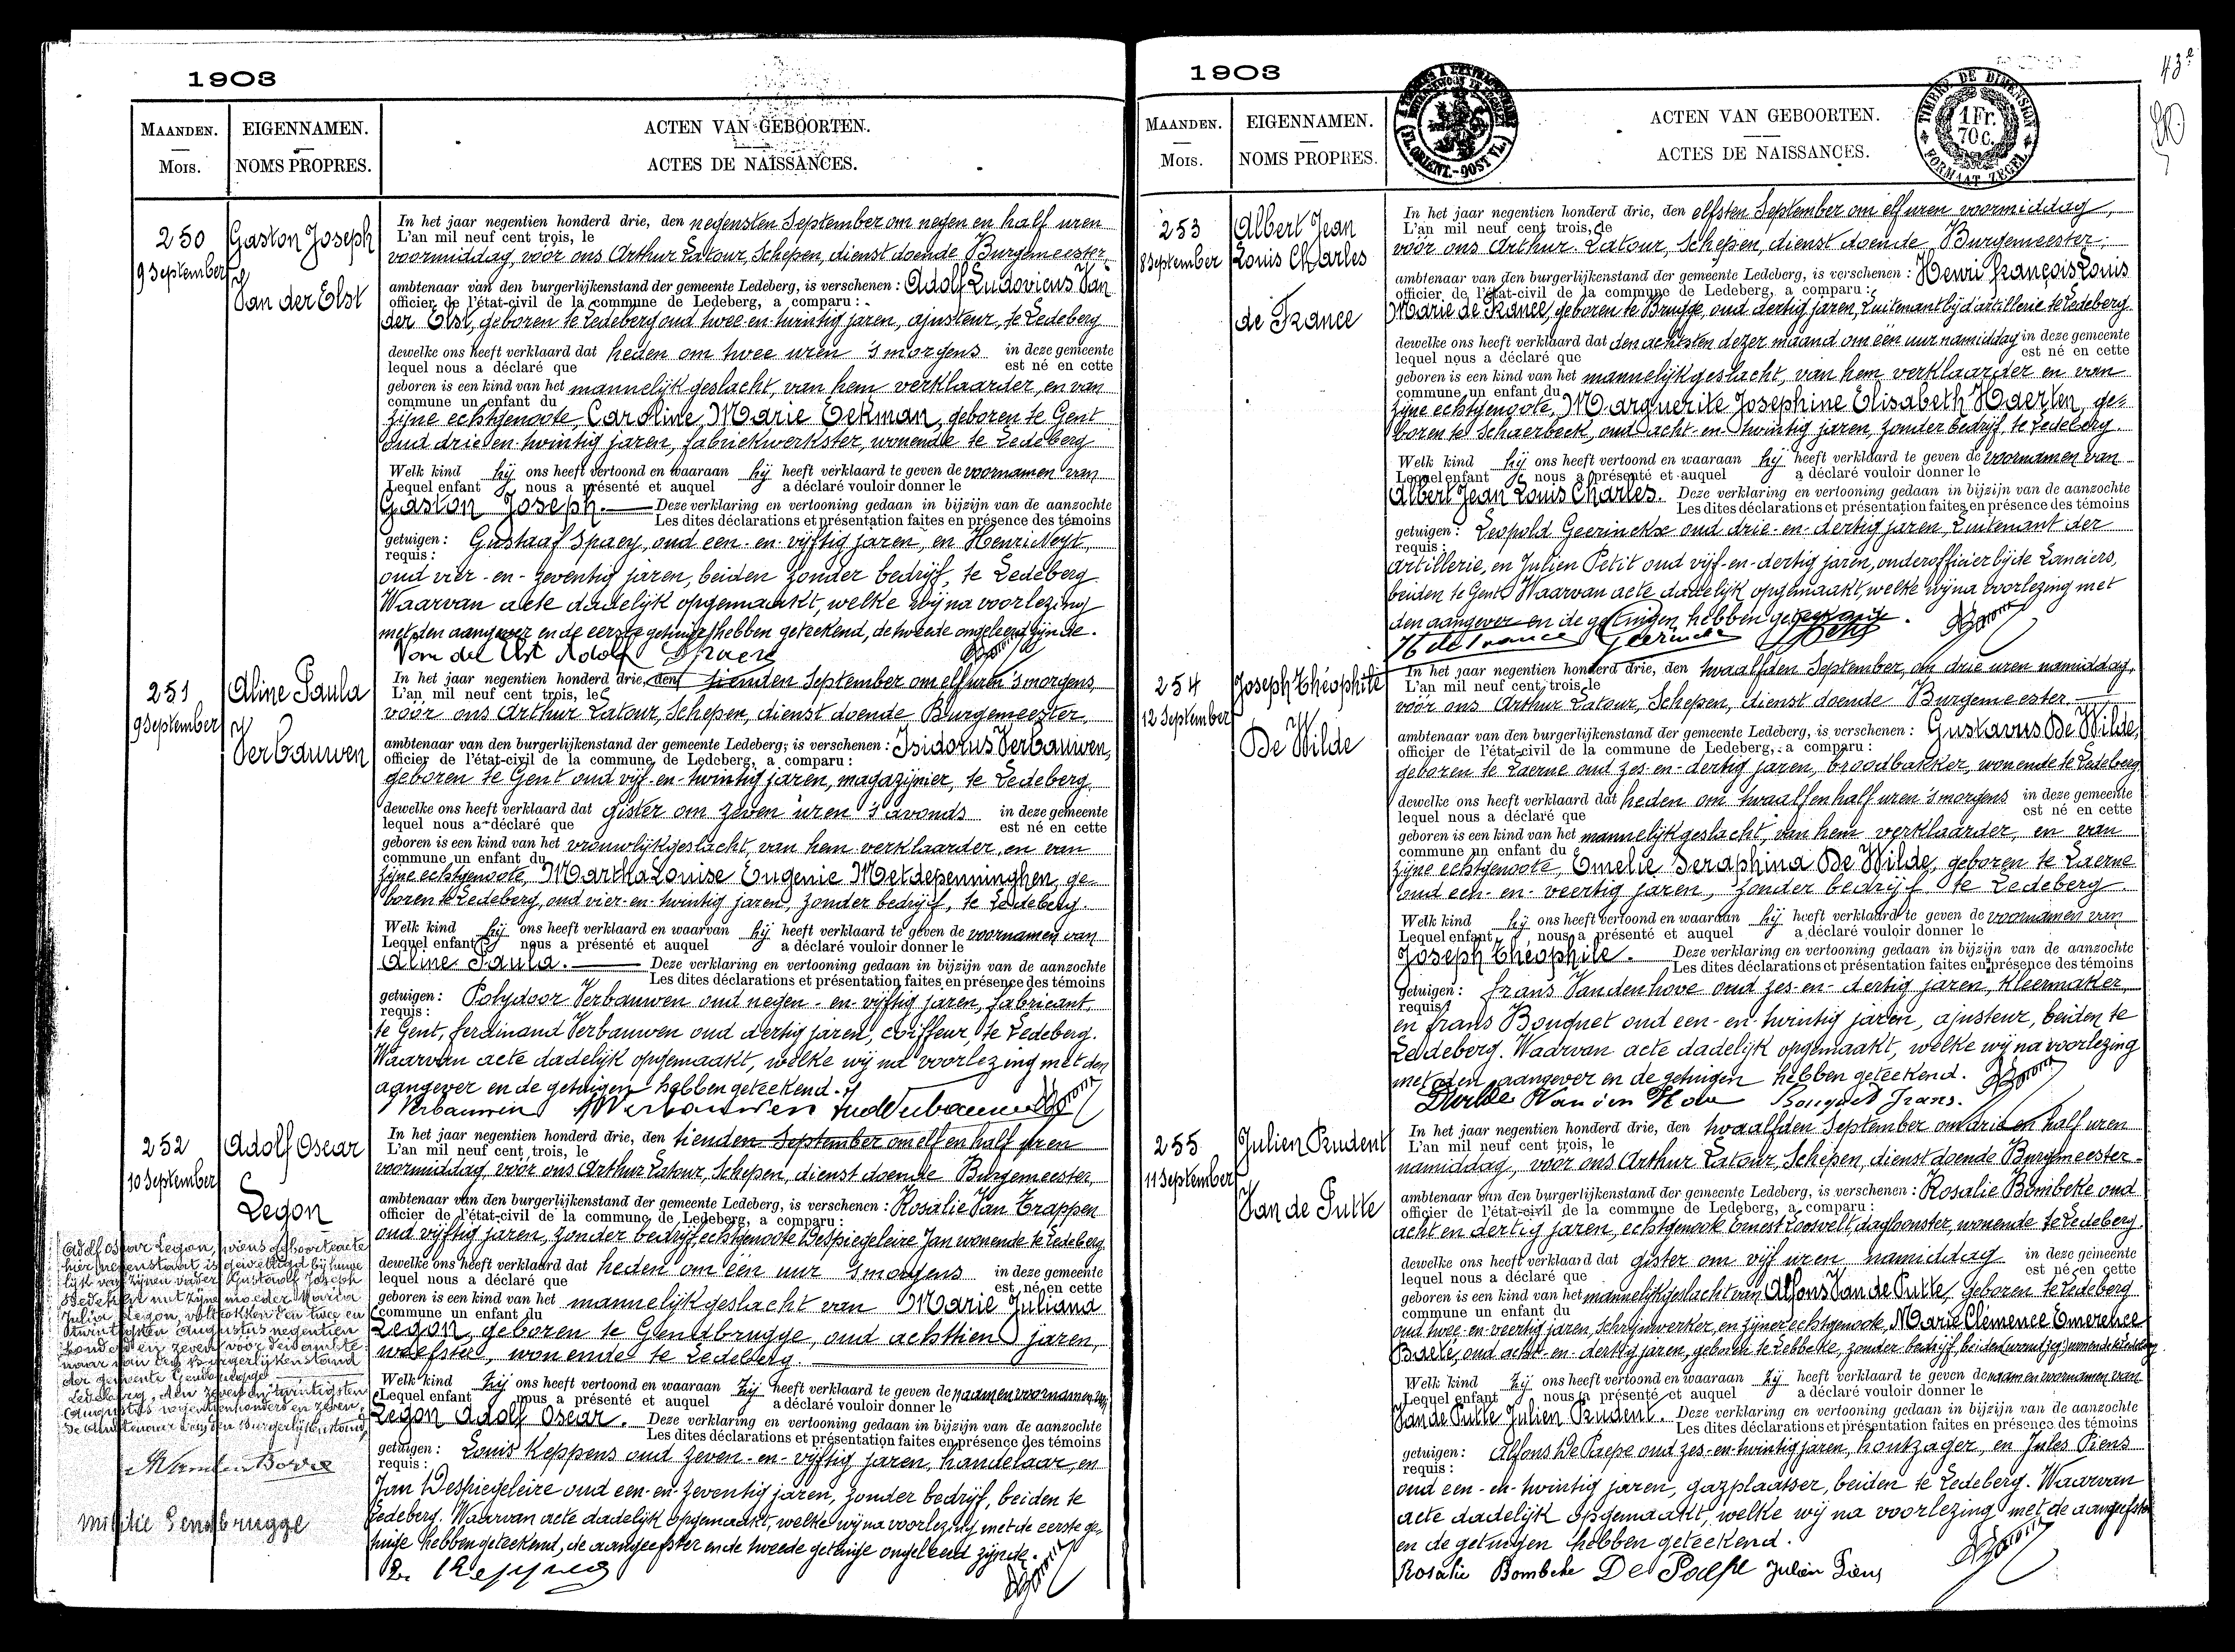 1903
MAANDEN.
Mois.
EIGENNAMEN.
NOMS PROPRES.
ACTEN VAN GEBOORTEN.
ACTES DE NAISSANCES.
250
9 September
Gaston Joseph
Van der Elst
In het jaar negentien honderd drie, den negensten September om negen en half uren
L'an mil neuf cent trois, le
voormiddag, vóór ons Arthur Latour, Schepen, dienst doende Burgemeester,
ambtenaar van den burgerlijkenstand der gemeente Ledeberg, is verschenen: Adolf Ludovicus Van
officier de l'état-civil de la commune de Ledeberg, a comparu:
der Elst, geboren te Ledeberg oud twee-en-twintig jaren, ajusteur, te Ledeberg
dewelke ons heeft verklaard dat heden om twee uren 's morgens in deze gemeente
lequel nous a déclaré que est né en cette
geboren is een kind van het mannelijk geslacht, van hem verklaarder, en van
commune un enfant du
zijne echtgenoote, Caroline Marie Eekman, geboren te Gent
oud drie en twintig jaren, fabriekwerkster, wonende te Ledeberg
Welk kind hij ons heeft vertoond en waaraan hij heeft verklaard te geven de voornamen van
Lequel enfant nous a présenté et auquel a déclaré vouloir donner le
Gaston Joseph. Deze verklaring en vertooning gedaan in bijzijn van de aanzochte
Les dites déclarations et présentation faites en présence des témoins
getuigen: Gustaaf Spaey, oud een-en-vijftig jaren, en Henri Neyt,
requis:
oud vier-en-zeventig jaren, beiden zonder bedrijf, te Ledeberg
Waarvan acte dadelijk opgemaakt, welke wij na voorlezing
met den aangever en de eerste getuige hebben geteekend, de tweede ongeleerd zijnde.
Van der Elst Adolf
251
9 September
Aline Paula
Verbauwen
In het jaar negentien honderd drie, den tienden September om elf uren 's morgens,
L'an mil neuf cent trois, le
vóór ons Arthur Latour, Schepen, dienst doende Burgemeester,
ambtenaar van den burgerlijkenstand der gemeente Ledeberg, is verschenen: Isidorus Verbauwen,
officier de l'état-civil de la commune de Ledeberg, a comparu:
geboren te Gent oud vijf-en-twintig jaren, magazijnier, te Ledeberg
dewelke ons heeft verklaard dat gister om zeven uren 's avonds in deze gemeente
lequel nous a déclaré que est né en cette
geboren is een kind van het vrouwlijk geslacht, van hem verklaarder, en van
commune un enfant du
zijne echtgenoote, Martha Louise Eugenie Metdepenninghen, ge-
boren te Ledeberg, oud vier-en-twintig jaren, zonder bedrijf, te Ledeberg.
Welk kind hij ons heeft vertoond en waarvan hij heeft verklaard te geven de voornamen van
Lequel enfant nous a présenté et auquel a déclaré vouloir donner le
Aline Paula. Deze verklaring en vertooning gedaan in bijzijn van de aanzochte
Les dites déclarations et présentation faites en présence des témoins
getuigen: Polydoor Verbauwen oud negen-en-vijftig jaren, fabricant,
requis:
te Gent, Ferdinand Verbauwen oud dertig jaren, coiffeur, te Ledeberg.
Waarvan acte dadelijk opgemaakt, welke wij na voorlezing met den
aangever en de getuigen hebben geteekend.
Verbauwen
252
10 September
Adolf Oscar
Legon
In het jaar negentien honderd drie, den tienden September om elf en half uren
L'an mil neuf cent trois, le
voormiddag, vóór ons Arthur Latour, Schepen, dienst doende Burgemeester,
ambtenaar van den burgerlijkenstand der gemeente Ledeberg, is verschenen: Rosalie Van Trappen
officier de l'état-civil de la commune de Ledeberg, a comparu:
oud vijftig jaren, zonder bedrijf, echtgenoote Despiegeleire Jan wonende te Ledeberg
dewelke ons heeft verklaard dat heden om één uur 's morgens in deze gemeente
lequel nous a déclaré que est né en cette
geboren is een kind van het mannelijk geslacht van Marie Juliana
commune un enfant du
Legon, geboren te Gendbrugge, oud achttien jaren,
weefster, wonende te Ledeberg.
Welk kind zij ons heeft vertoond en waaraan zij heeft verklaard te geven de naam en voornamen van
Lequel enfant nous a présenté et auquel a déclaré vouloir donner le
Legon Adolf Oscar. Deze verklaring en vertooning gedaan in bijzijn van de aanzochte
Les dites déclarations et présentation faites en présence des témoins
getuigen: Louis Keppens oud zeven-en-vijftig jaren, handelaar, en
requis:
Jan Despiegeleire oud een-en-zeventig jaren, zonder bedrijf, beiden te
Ledeberg. Waarvan acte dadelijk opgemaakt, welke wij na voorlezing met de eerste ge-
tuige hebben geteekend, de aangeefster en de tweede getuige ongeleerd zijnde.
Adolf Oscar Legon, wiens geboorteacte
hier nevenstaat is gewettigd bij huwe-
lijk van zijnen vader Gustaaf Joseph
met zijne moeder Maria
Julia Legon, voltrokken den twee en
twintigsten Augustus negentien
honderd en zeven voor den ambte-
naar van den Burgerlijkenstand
der gemeente Gendbrugge
Ledeberg, den zeven en twintigsten
Augustus negentienhonderd en zeven.
De Ambtenaar van den Burgerlijken stand,
militie Gendbrugge
1903
43e
MAANDEN.
Mois.
EIGENNAMEN.
NOMS PROPRES.
ACTEN VAN GEBOORTEN.
ACTES DE NAISSANCES.
(FL. ORIENT.-OOST VL.)
TIMBRE DE DIMENSION
1 Fr.
70 c.
FORMAAT ZEGEL
253
8 September
Albert Jean
Louis Charles
de France
In het jaar negentien honderd drie, den elfsten September om elf uren voormiddag,
L'an mil neuf cent trois, le
vóór ons Arthur Latour, Schepen, dienst doende Burgemeester,
ambtenaar van den burgerlijkenstand der gemeente Ledeberg, is verschenen: Henri François Louis
officier de l'état-civil de la commune de Ledeberg, a comparu:
Marie de France, geboren te Brugge, oud dertig jaren, Luitenant bij d'artillerie te Ledeberg
dewelke ons heeft verklaard dat den achtsten dezer maand om één uur namiddag in deze gemeente
lequel nous a déclaré que est né en cette
geboren is een kind van het mannelijk geslacht, van hem verklaarder en van
commune un enfant du
zijne echtgenoote, Marguerite Josephine Elisabeth Haerten, ge-
boren te Schaerbeek, oud acht-en-twintig jaren, zonder bedrijf, te Ledeberg.
Welk kind hij ons heeft vertoond en waaraan hij heeft verklaard te geven de voornamen van
Lequel enfant nous a présenté et auquel a déclaré vouloir donner le
Albert Jean Louis Charles. Deze verklaring en vertooning gedaan in bijzijn van de aanzochte
Les dites déclarations et présentation faites en présence des témoins
getuigen: Leopold Geerinckx oud drie-en-dertig jaren, Luitenant der
requis:
artillerie, en Julien Petit oud vijf-en-dertig jaren, onderofficier bij de Lanciers,
beiden te Gent. Waarvan acte dadelijk opgemaakt, welke wij na voorlezing met
den aangever en de getuigen hebben geteekend.
H de France
254
12 September
Joseph Théophile
De Wilde
In het jaar negentien honderd drie, den twaalfden September, om drie uren namiddag,
L'an mil neuf cent trois, le
vóór ons Arthur Latour, Schepen, dienst doende Burgemeester
ambtenaar van den burgerlijkenstand der gemeente Ledeberg, is verschenen: Gustavus De Wilde,
officier de l'état-civil de la commune de Ledeberg, a comparu:
geboren te Laerne oud zes-en-dertig jaren, broodbakker, wonende te Ledeberg
dewelke ons heeft verklaard dat heden om twaalf en half uren 's morgens in deze gemeente
lequel nous a déclaré que est né en cette
geboren is een kind van het mannelijk geslacht, van hem verklaarder, en van
commune un enfant du
zijne echtgenoote, Emelie Seraphina De Wilde, geboren te Laerne
oud een-en-veertig jaren, zonder bedrijf te Ledeberg
Welk kind hij ons heeft vertoond en waaraan hij heeft verklaard te geven de voornamen van
Lequel enfant nous a présenté et auquel a déclaré vouloir donner le
Joseph Théophile. Deze verklaring en vertooning gedaan in bijzijn van de aanzochte
Les dites déclarations et présentation faites en présence des témoins
getuigen: Frans Vandenhove oud zes-en-dertig jaren, kleermaker,
requis:
en Frans Bouquet oud een-en-twintig jaren, ajusteur, beiden te
Ledeberg. Waarvan acte dadelijk opgemaakt, welke wij na voorlezing
met den aangever en de getuigen hebben geteekend.
Van den Hove Bouquet Frans.
255
11 September
Julien Prudent
Van de Putte
In het jaar negentien honderd drie, den twaalfden September om drie en half uren
L'an mil neuf cent trois, le
namiddag, vóór ons Arthur Latour, Schepen, dienst doende Burgemeester
ambtenaar van den burgerlijkenstand der gemeente Ledeberg, is verschenen: Rosalie Bombeke oud
officier de l'état-civil de la commune de Ledeberg, a comparu:
acht en dertig jaren, echtgenoote Ernest Loosvelt, dagloonster, wonende te Ledeberg.
dewelke ons heeft verklaard dat gister om vijf uren namiddag in deze gemeente
lequel nous a déclaré que est né en cette
geboren is een kind van het mannelijk geslacht van Alfons Van de Putte, geboren te Ledeberg
commune un enfant du
oud twee-en-veertig jaren, schrijnwerker, en zijner echtgenoote, Marie Clémence Emerence
Baele, oud acht-en-dertig jaren, geboren te Lebbeke, zonder bedrijf, beiden wonende te Ledeberg.
Welk kind zij ons heeft vertoond en waaraan zij heeft verklaard te geven de naam en voornamen van
Lequel enfant nous a présenté et auquel a déclaré vouloir donner le
Van de Putte Julien Prudent. Deze verklaring en vertooning gedaan in bijzijn van de aanzochte
Les dites déclarations et présentation faites en présence des témoins
getuigen: Alfons De Paepe oud zes-en-twintig jaren, houtzager, en Jules Piens
requis:
oud een-en-twintig jaren, gazplaatser, beiden te Ledeberg. Waarvan
acte dadelijk opgemaakt, welke wij na voorlezing met de aangeefster
en de getuigen hebben geteekend.
Rosalie Bombeke De Paepe Julien Piens